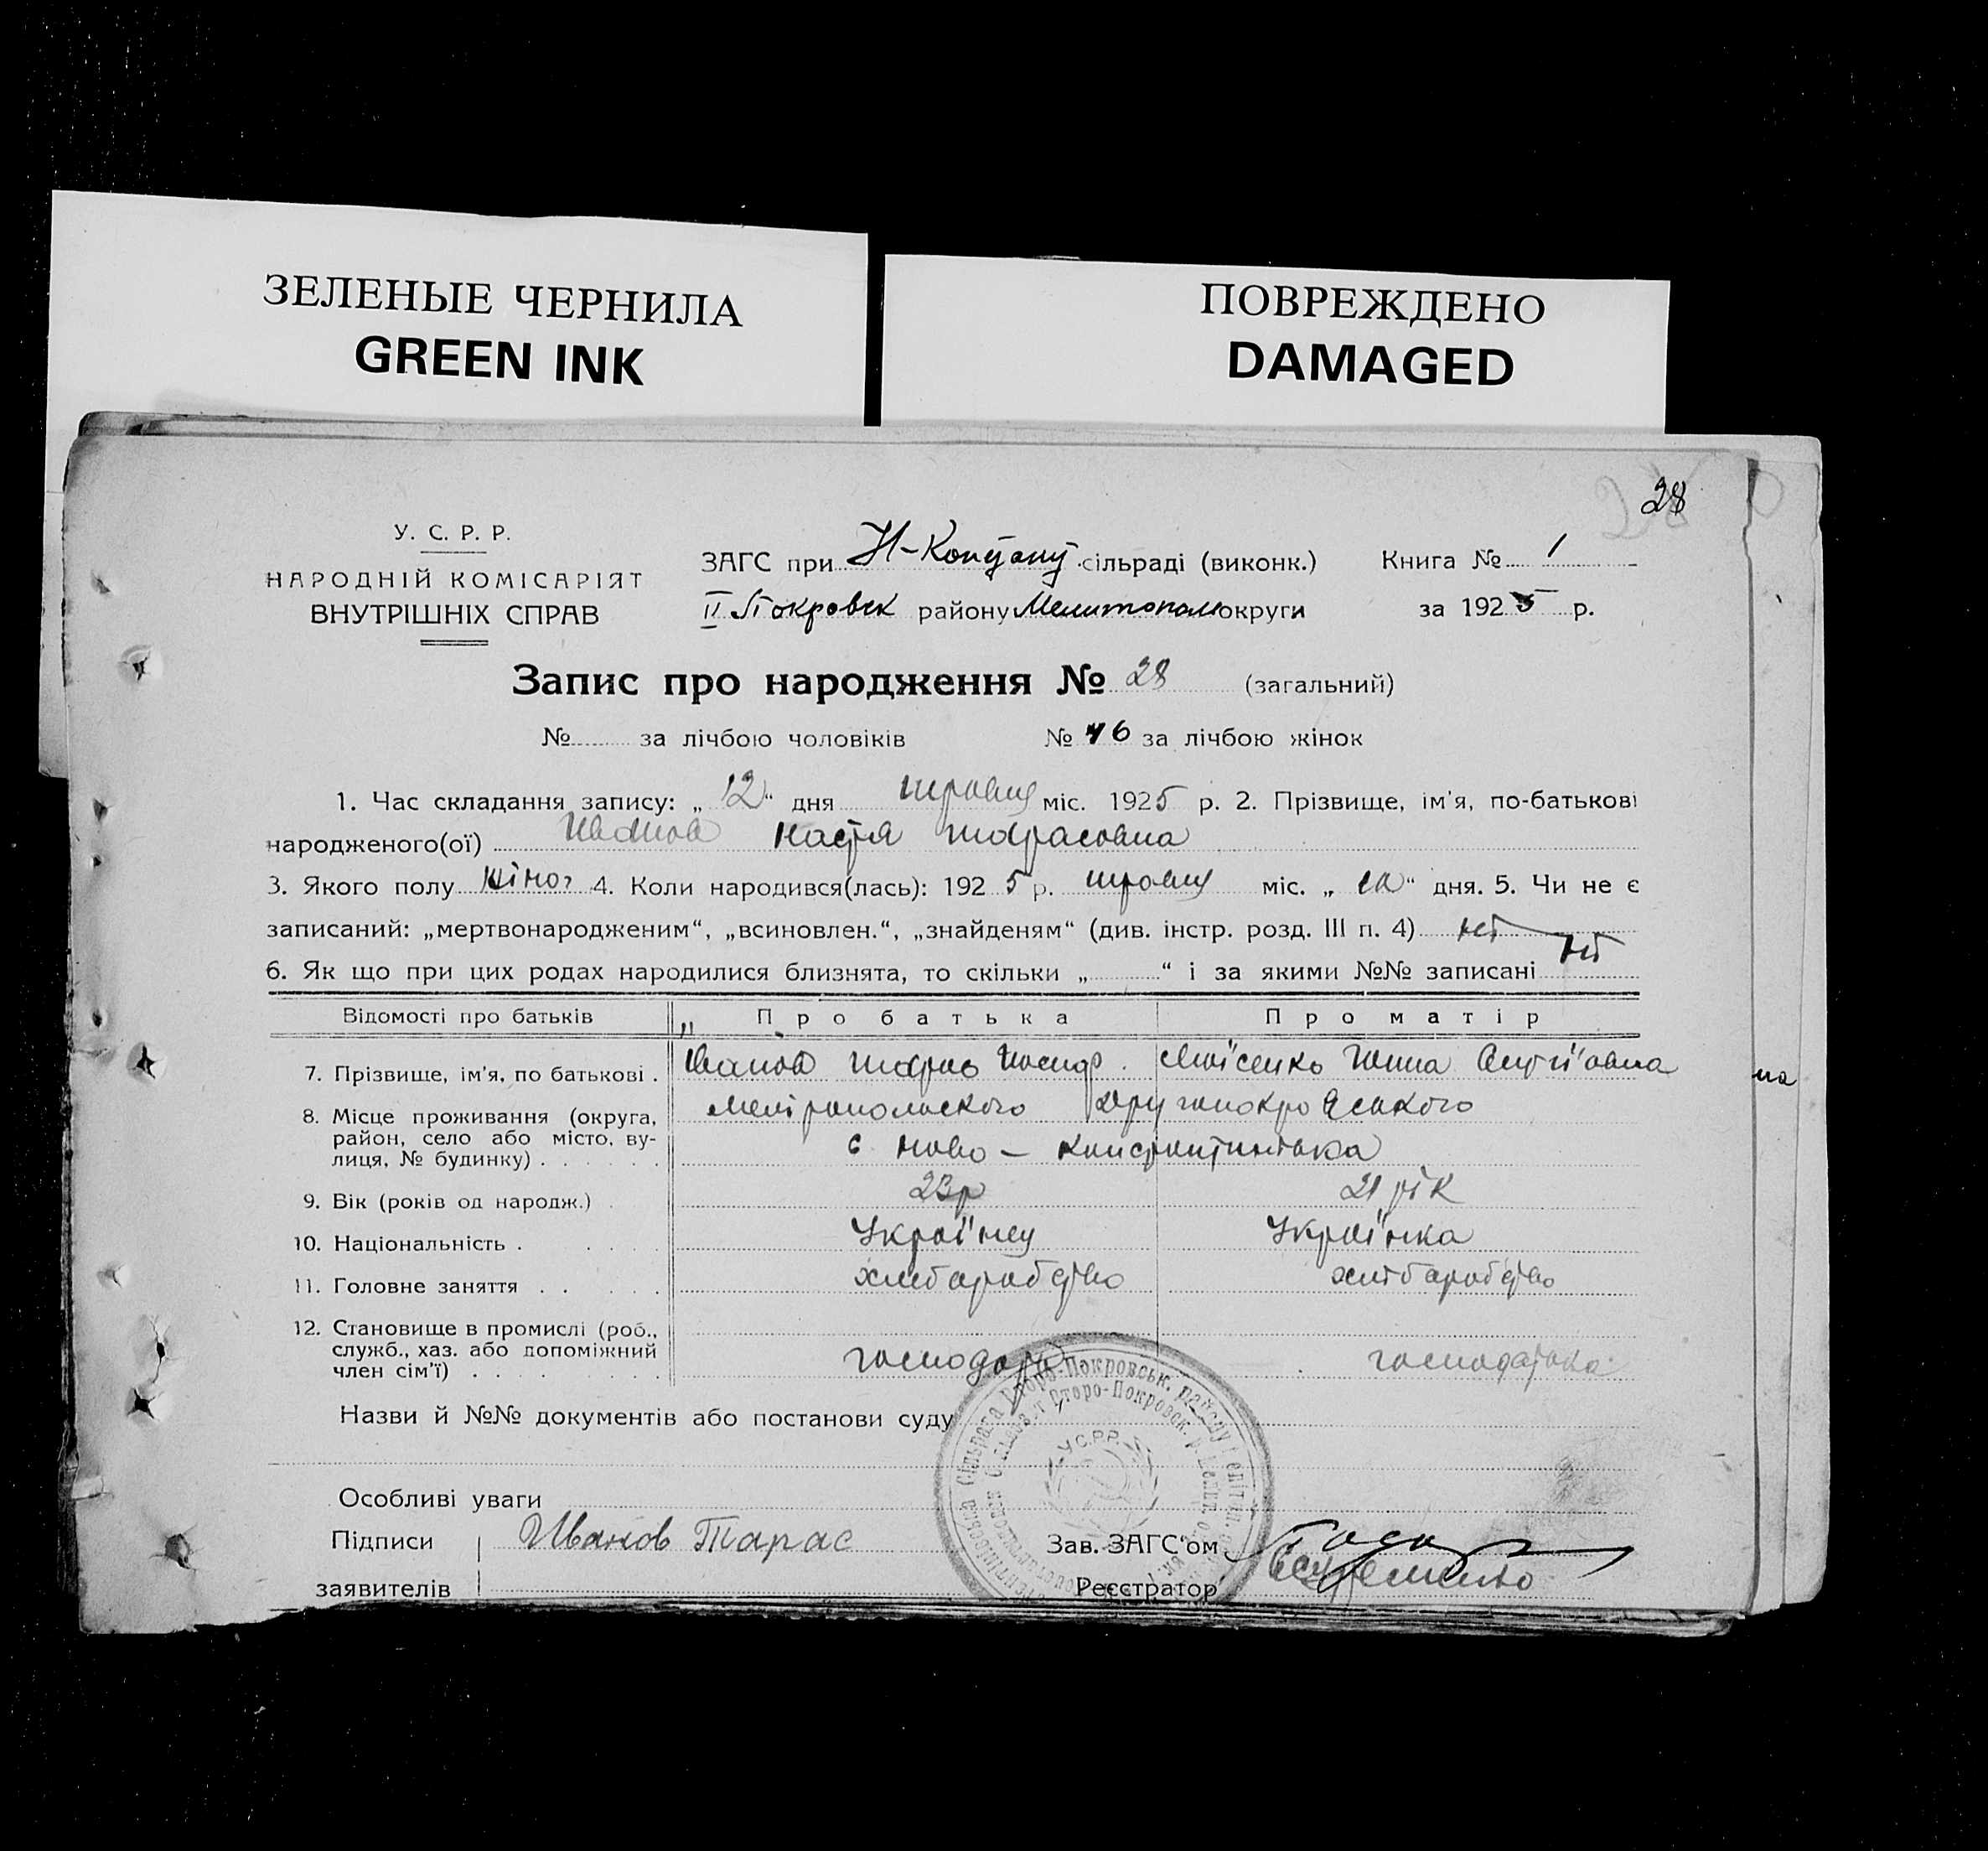 ЗЕЛЕНЫЕ ЧЕРНИЛА
GREEN INK
ПОВРЕЖДЕНО
DAMAGED
28
У. С. Р. Р.
НАРОДНІЙ КОМІСАРІЯТ
ВНУТРІШНІХ СПРАВ
ЗАГС при Н- сільраді (виконк.) Книга № 1
II Покровск району Мелитопол округи за 1925 р.
Запис про народження № 28 (загальний)
№ за лічбою чоловіків № 16 за лічбою жінок
1. Час складання запису: „ 12 “ дня травня міс. 1925 р. 2. Прізвище, ім'я, по-батькові
народженого(ої) Иванов Настя Тарасовна
3. Якого полу жіно 4. Коли народився(лась): 1925 р. травня міс. „ “ дня. 5. Чи не є
записаний: „мертвонародженим“, „всиновлен.“, „знайденям“ (див. інстр. розд. III п. 4) ні
6. Як що при цих родах народилися близнята, то скільки „ “ і за якими №№ записані ні
Відомості про батьків Про батька Про матір
7. Прізвище, ім'я, по батькові . Иванов Тарас Иосип. Моїсенко Ганна
8. Місце проживання (округа, район, село або місто, ву-лиця, № будинку) . . . . . . Мелітопольского Другопокровського
с Ново – Константиновка
9. Вік (років од народж.) . 23р 21 рік
10. Національність . Українец Українка
11. Головне заняття . . хлібаробство хлібаробство
12. Становище в промислі (роб.,
служб., хаз. або допоміжний
член сім'ї) . . . господар господарка
Назви й №№ документів або постанови суду
Особливі уваги
Підписи Иванов Тарас Зав. ЗАГС'ом
заявителів Реєстратор
Сільрада Второ-Покровськ. району
Второ-Покровск.
У.С.Р.Р.